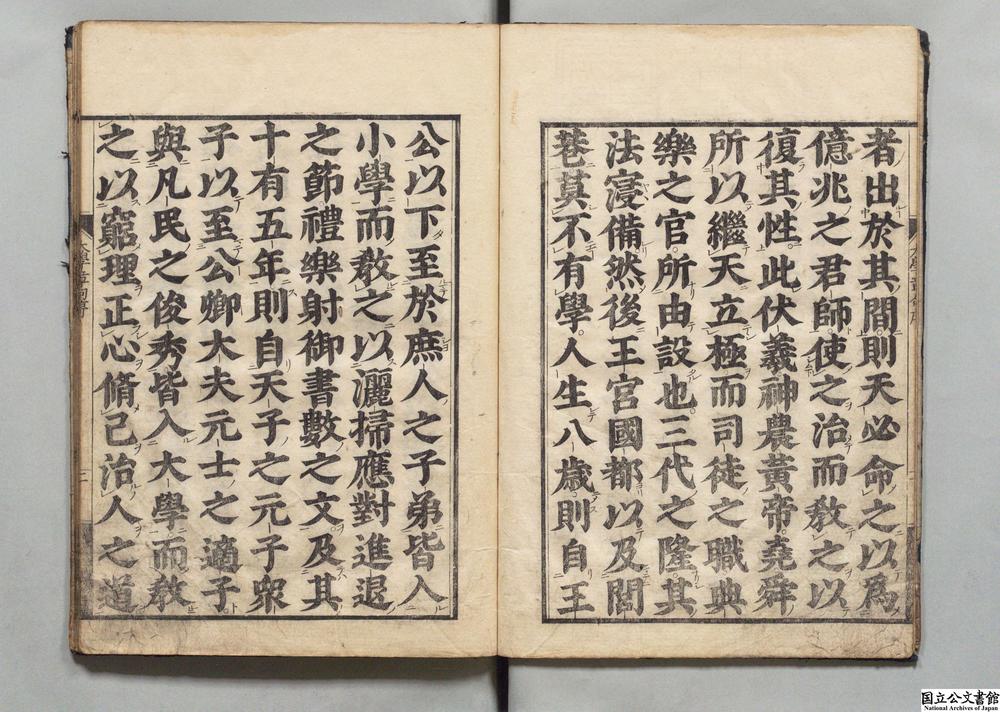 者出於其間。則天必命之以爲
億兆之君師。使之治而敎之以
復其性。此伏羲神農黃帝堯舜
所以繼天立極而司徒之職典
樂之官。所由設也。三代之隆其
法寖備然後王官國都以及閭
巷莫不有學。人生八歲。則自王
公以下至於庶人之子弟皆入
小學而敎之以灑掃應對進退
之節禮樂射御書數之文及其
十有五年則自天子之元子衆
子以至公卿大夫元士之適子
與凡民之俊秀皆入大學而敎
之以窮理正心脩己治人之道
国立公文書館
National Archives of Japan